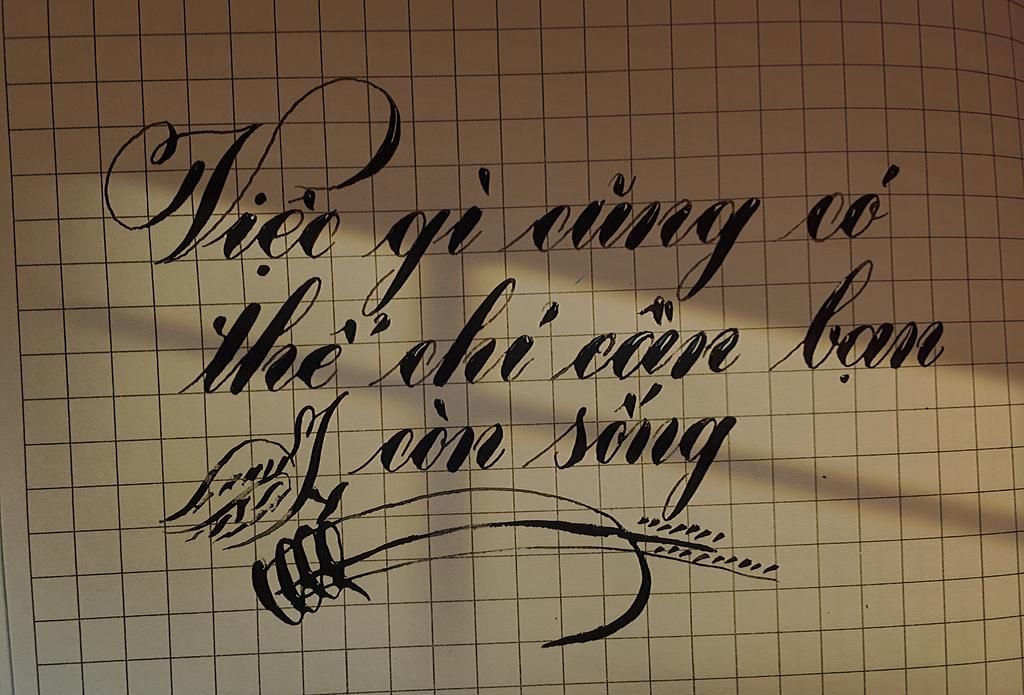 Việc gì cũng có
thể chỉ cần bạn
còn sống